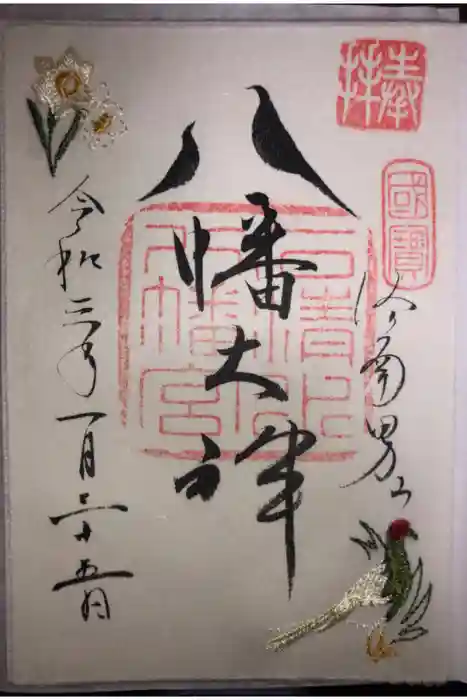 奉拝
國寶
洛南男山
八幡大神
石清水八幡宮
令和三年一月二十五日